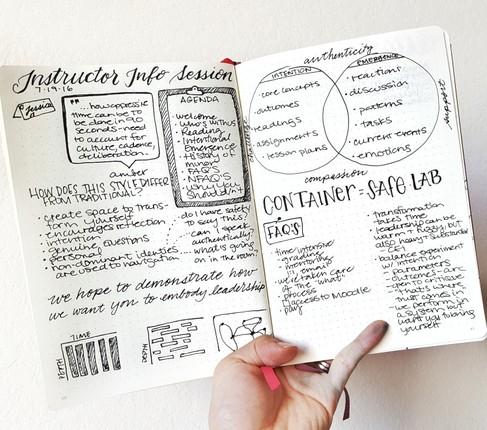 Instructor Info Session
7-19-16
"... how oppressive
time can be to
be done in 90
seconds - need
to account for
culture, cadence,
deliberation.
amber
AGENDA
welcome
who's with us
Reading
Intentional
Emergence
History of
minor
FAQ'S
NFAQ'S
why you
shouldn't
HOW DOES THIS STYLE DIFFER
FROM TRADITIONAL?
· create space to trans-
form yourself
· encourages reflection
· intention
· genuine questions
· personal
· non-dominant identities
are used to navigation
do I have safety
to say this,
can I speak
authentically,
what's going
on in the room?
we hope to demonstrate how
we want you to embody leadership
TIME
DEPTH
DEPTH
authenticity
INTENTION
· core concepts
· outcomes
· readings
· assignments
· lesson plans
EMERGENCE
· reactions
· discussion
· patterns
· tasks
· current events
· emotions
support
compassion
CONTAINER = SAFE LAB
FAQ'S
· time intensive
- grading
- mentoring
- email
· we're taken care
of the "what"
· process
· access to Moodle
· pay
· transformation
takes time
· leadership can be
warm + fuzzy, but
also heavy + substantial
· balance experiment
w/ intention
- parameters
- outcomes - arc
· open to critique
- that's where
trust comes in
· we perform in
a system but
want you to bring
yourself